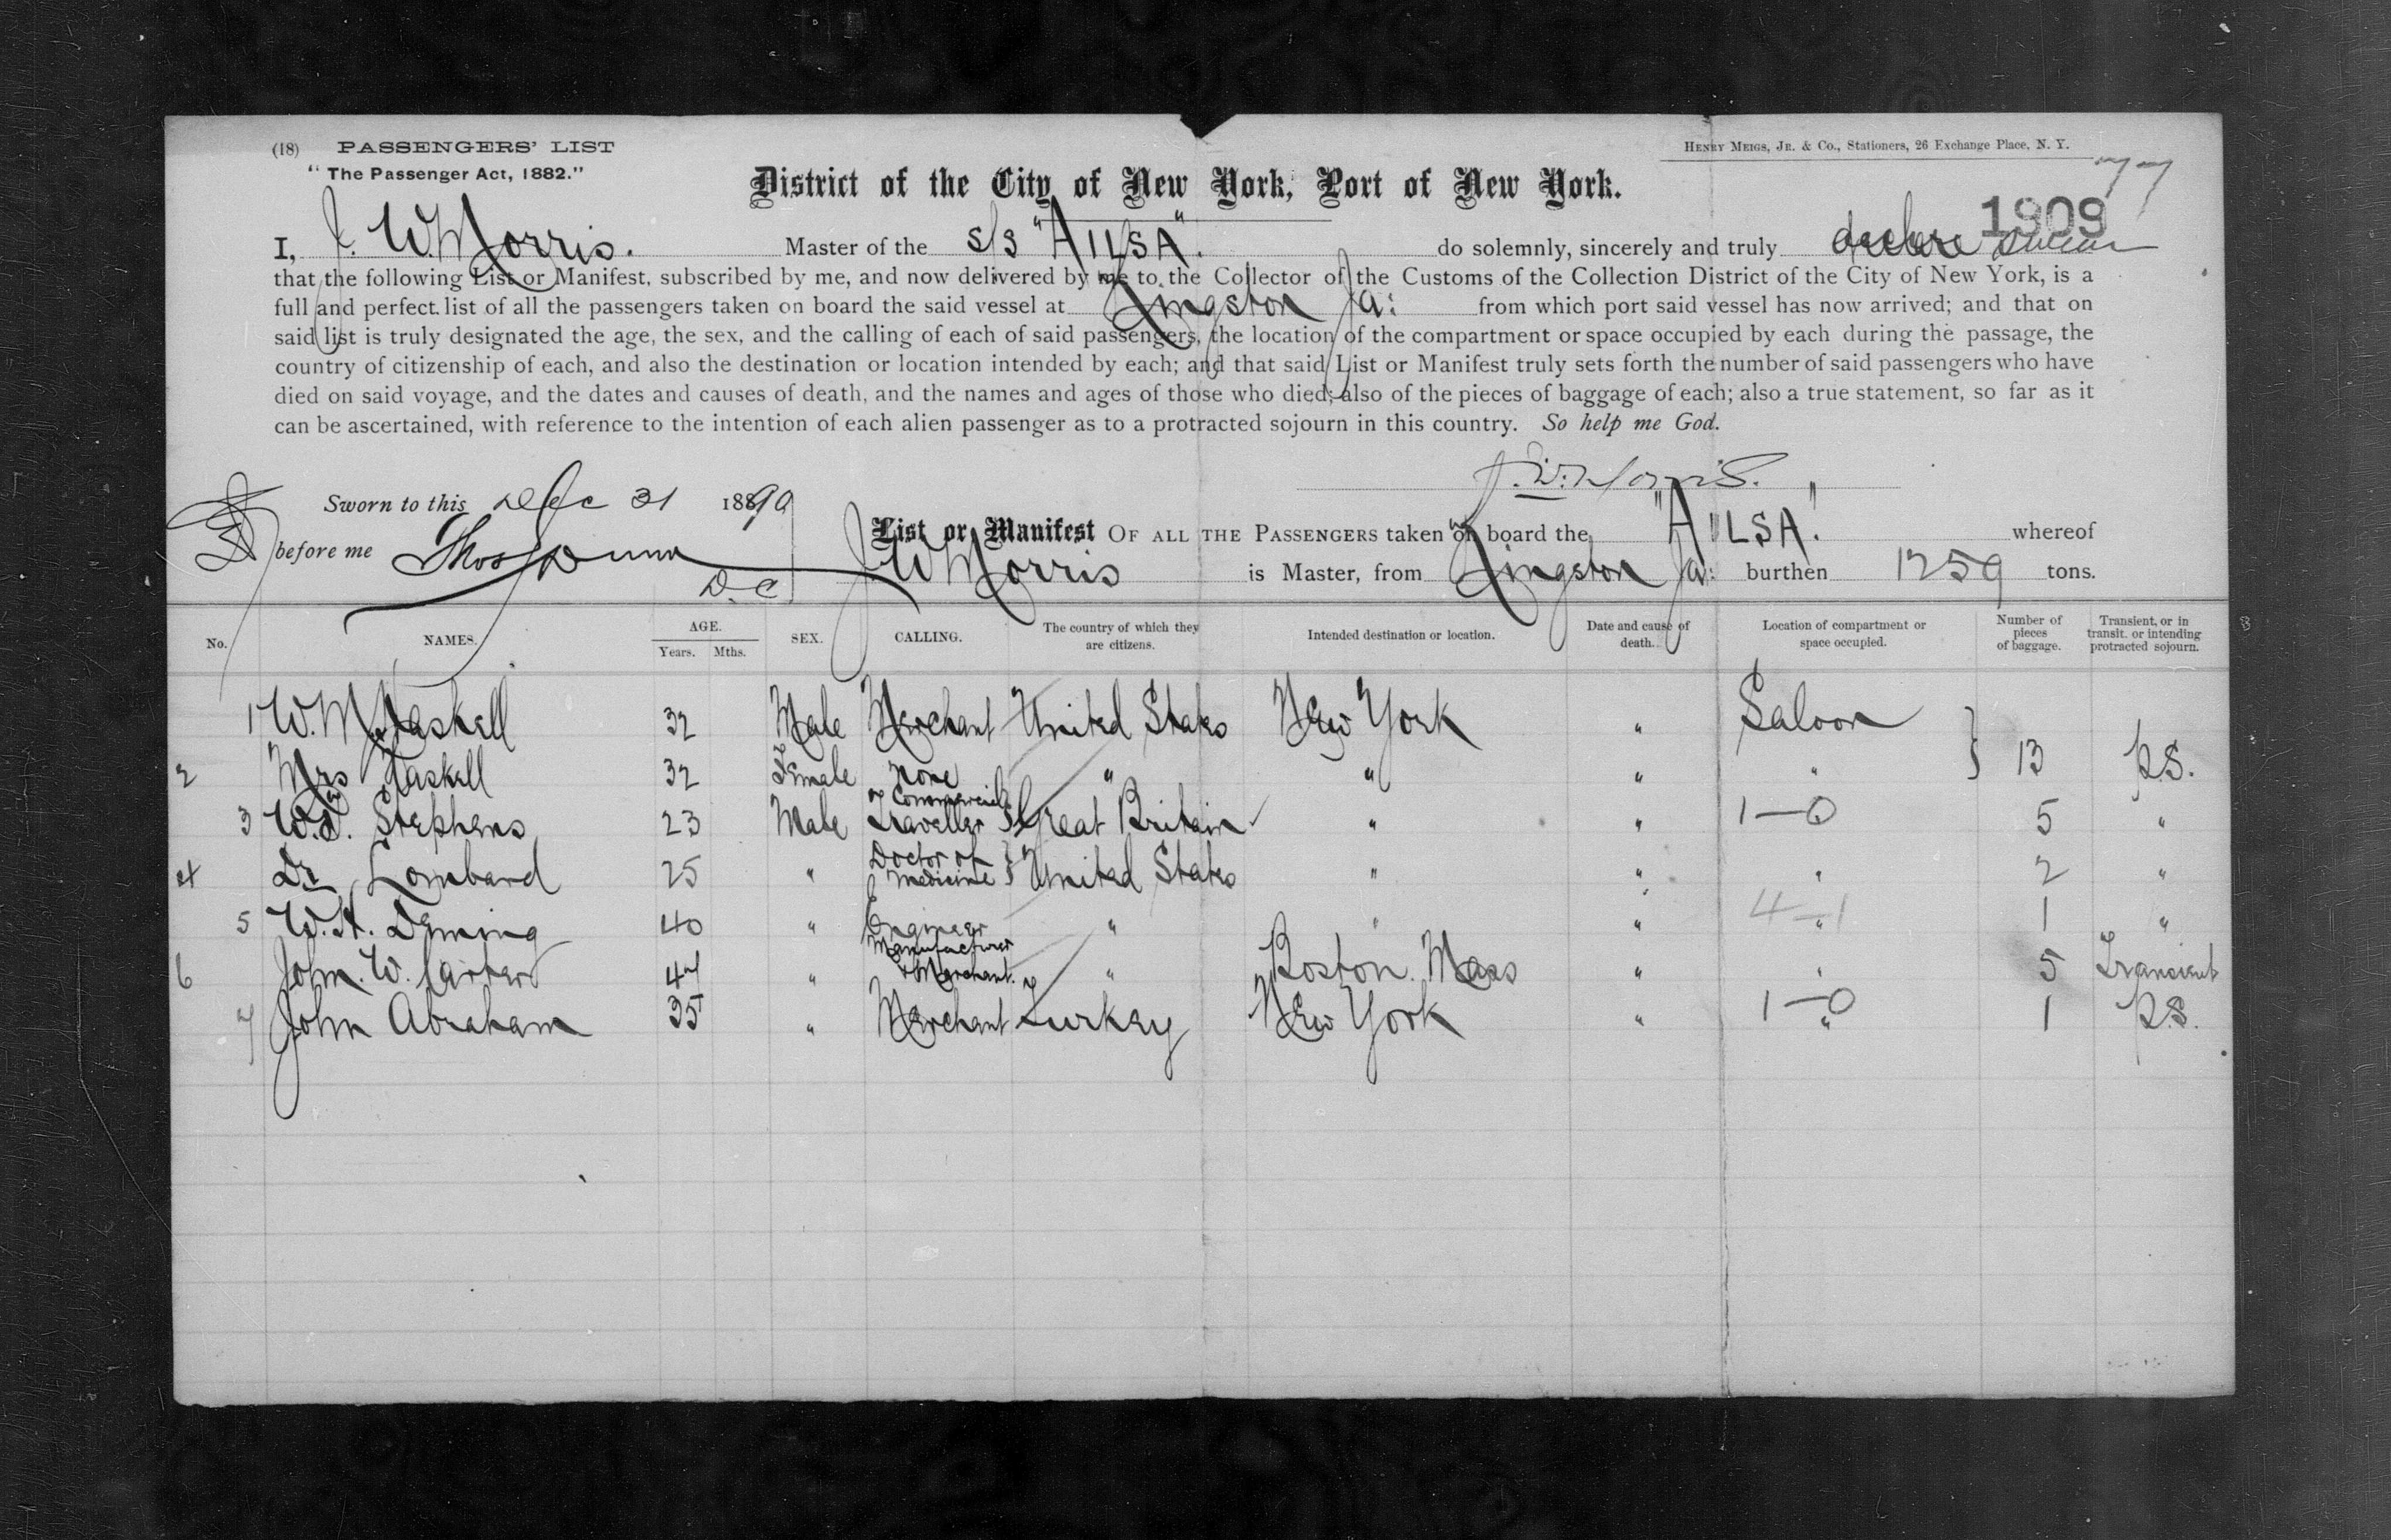 (18) PASSENGERS' LIST
HENRY MEIGS, JR. & CO., Stationers, 26 Exchange Place, N. Y.
"The Passenger Act, 1882."
77
District of the City of New York, Port of New York.
1909
I, J. W. Morris. Master of the S/S "AILSA". do solemnly, sincerely and truly declare swear
that the following List or Manifest, subscribed by me, and now delivered by me to the Collector of the Customs of the Collection District of the City of New York, is a
full and perfect list of all the passengers taken on board the said vessel at Kingston Ja: from which port said vessel has now arrived; and that on
said list is truly designated the age, the sex, and the calling of each of said passengers, the location of the compartment or space occupied by each during the passage, the
country of citizenship of each, and also the destination or location intended by each; and that said List or Manifest truly sets forth the number of said passengers who have
died on said voyage, and the dates and causes of death, and the names and ages of those who died; also of the pieces of baggage of each; also a true statement, so far as it
can be ascertained, with reference to the intention of each alien passenger as to a protracted sojourn in this country. So help me God.
J. W. Morris.
Sworn to this Dec 31 1890
before me Thos Dunn
D.C.
List or Manifest OF ALL THE PASSENGERS taken on board the "AILSA." whereof
J W Morris is Master, from Kingston Ja: burthen 1259 tons.
No. NAMES. AGE. Years. Mths. SEX. CALLING. The country of which they are citizens. Intended destination or location. Date and cause of death. Location of compartment or space occupied. Number of pieces of baggage. Transient, or in transit, or intending protracted sojourn.
1 W. M. Haskell 32 Male Merchant United States New York " Saloon
2 Mrs Haskell 32 Female None " " " " 13 P.S.
3 Stephens 23 Male Commercial Traveller Great Britain " " 1—0 5 "
4 Dr Lombard 25 " Doctor of Medicine United States " " " 2 "
5 W. H. Deming 40 " Engineer " " " 4—1 " 1 "
6 John. W. Carter 47 " Manufacturer & Merchant. " Boston. Mass " " 5 Transient
7 John Abraham 35 " Merchant Turkey New York " 1—0 " 1 P.S.